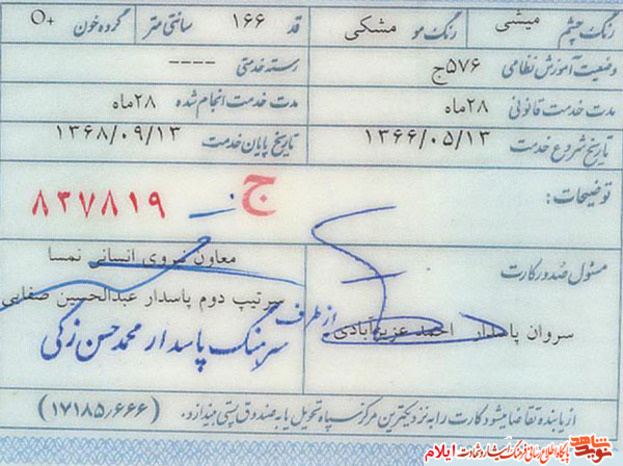 رنگ چشم میشی رنگ مو مشکی قد ۱۶۶ سانتی متر گروه خون O+
وضعیت آموزش نظامی ۵۷۶ج رسته خدمتی ----
مدت خدمت قانونی ۲۸ماه مدت خدمت انجام شده ۲۸ماه
تاریخ شروع خدمت ۱۳۶۶/۰۵/۱۳ تاریخ پایان خدمت ۱۳۶۸/۰۹/۱۳
توضیحات: ج - ۸۳۷۸۱۹
مسئول صدور کارت
سروان پاسدار احمد عزیزآبادی
معاون نیروی انسانی نمسا
سرتیپ دوم پاسدار عبدالحسین صفایی
از طرف
سرهنگ پاسدار محمد حسن زکی
از یابنده تقاضا میشود کارت را به نزدیکترین مرکز سپاه تحویل یا به صندوق پستی بیندازد. (۱۷۱۸۵٫۶۶۶)
نوید شاهد پایگاه اطلاع رسانی فرهنگ ایثار و شهادت ایلام